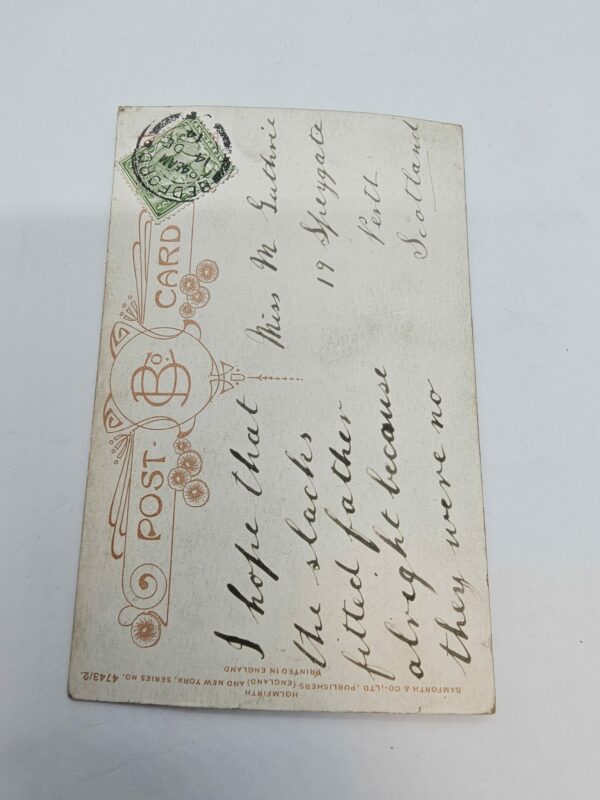 POST CARD
B Co.
BEDFORD
14 DE
14
I hope that
the slacks
fitted father
alright because
they were no
Miss M Guthrie
19 Speygate
Perth
Scotland
BAMFORTH & CO., LTD., PUBLISHERS (ENGLAND) AND NEW YORK, SERIES NO. 4743/2.
HOLMFIRTH
PRINTED IN ENGLAND